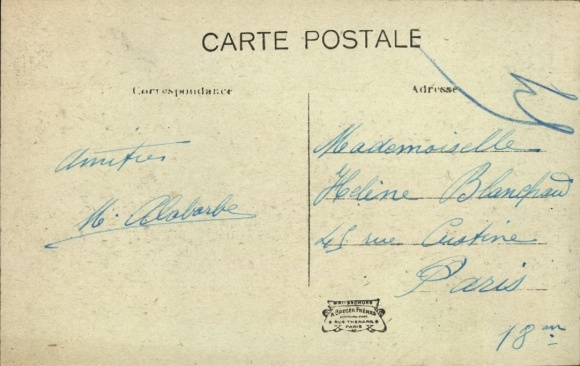 CARTE POSTALE
Correspondance
Adresse
Amitiés
M. Alabarbe
Mademoiselle
Hélène Blanchaud
45 rue Custine
Paris
18 em
PARIS